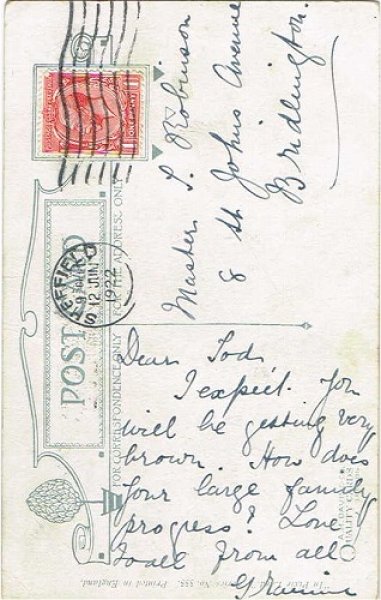 POST CARD
FOR CORRESPONDENCE ONLY
FOR THE ADDRESS ONLY
SHEFFIELD
12 JUN
1922
Master S. Robinson
8 St Johns Avenue
Bridlington.
Dear Tod,
I expect you
will be getting very
brown. How does
your large family
progress? Love
to all from all
QUALITY SERIES
Printed in England.